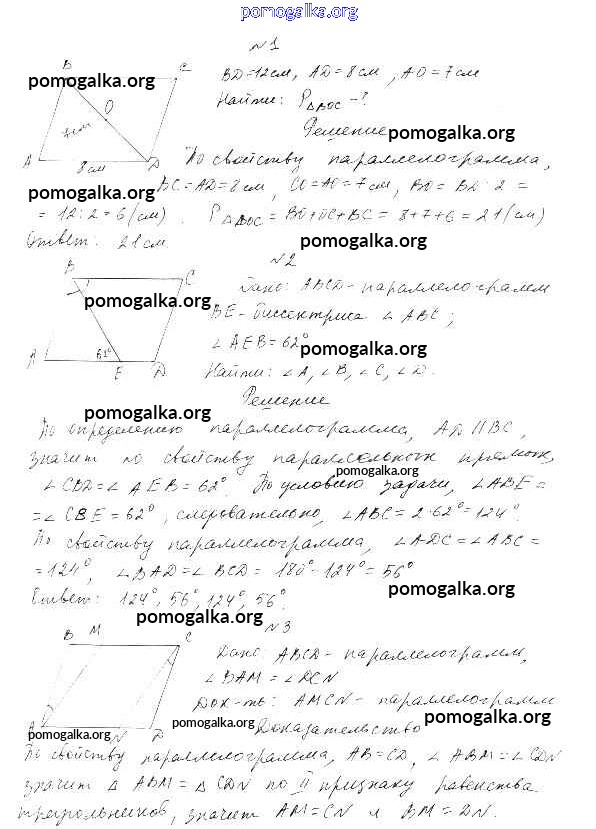 pomogalka.org
№1
B C BD=12см, AD=8см, AO=7см
pomogalka.org
O Найти: P△BOC-?
7см Решение pomogalka.org
A 8см D По свойству параллелограмма,
pomogalka.org BC=AD=8см, CO=AO=7см, BO=BD:2=
=12:2=6(см). P△BOC=BO+OC+BC=8+7+6=21(см)
Ответ: 21см pomogalka.org
№2
B C Дано: ABCD-параллелограмм
pomogalka.org BE-биссектриса ∠ABC;
∠AEB=62° pomogalka.org
A 61° E D Найти: ∠A, ∠B, ∠C, ∠D.
Решение
pomogalka.org
По определению параллелограмма, AD||BC,
значит по свойству параллельных прямых,
pomogalka.org
∠CBD=∠AEB=62°. По условию задачи, ∠ABE=
=∠CBE=62°, следовательно, ∠ABC=2·62°=124°.
По свойству параллелограмма, ∠ADC=∠ABC=
=124°, ∠BAD=∠BCD=180°-124°=56°
Ответ: 124°, 56°, 124°, 56°. pomogalka.org
pomogalka.org №3
B M C Дано: ABCD-параллелограмм,
∠BAM=∠DCN
Док-ть: AMCN-параллелограмм
A N D pomogalka.org Доказательство pomogalka.org
pomogalka.org
По свойству параллелограмма, AB=CD, ∠ABM=∠CDN
значит △ABM=△CDN по II признаку равенства
треугольников, значит AM=CN и BM=DN.